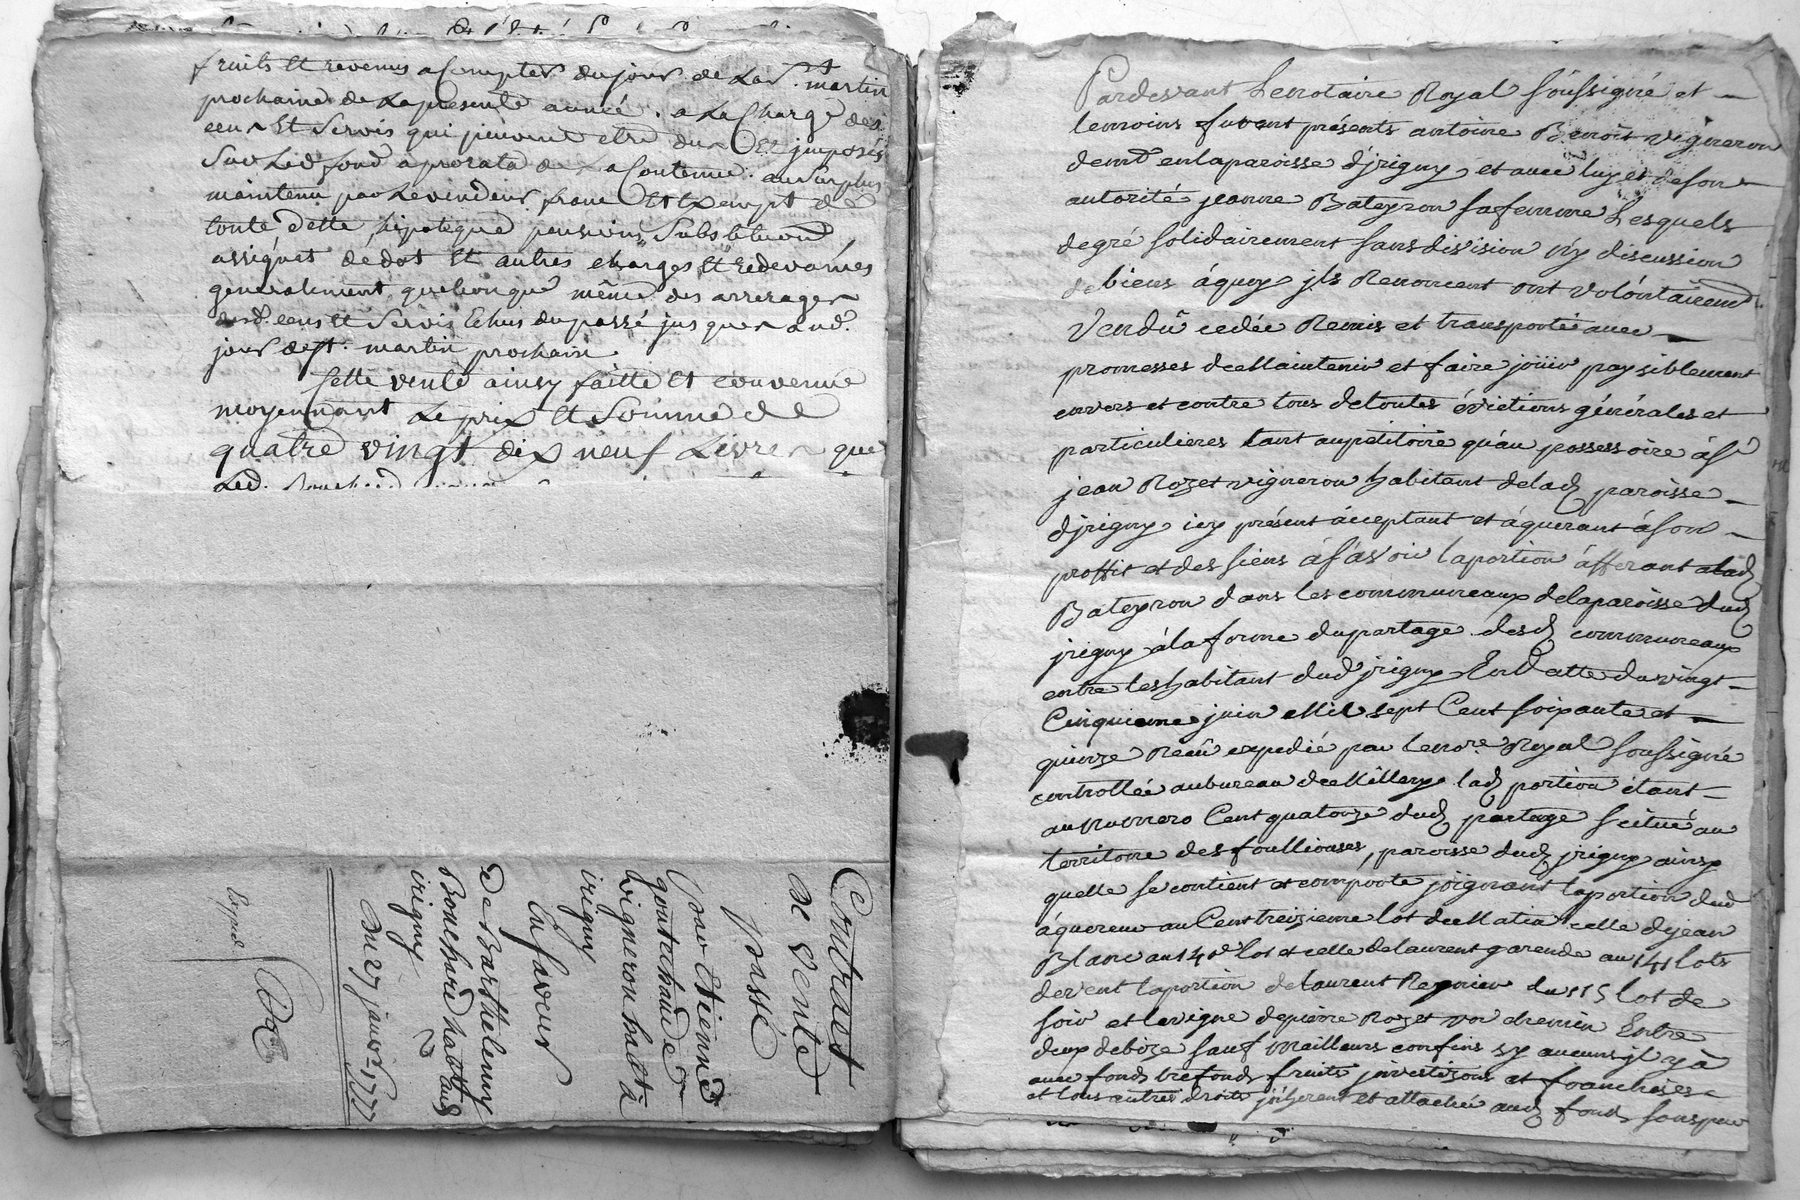 fruits Et revenus a Compter du jour de La St. martin
prochaine de La presente année. a La Charge des
cens Et Servis qui peuvent etre dus Et jmposés
Sur Led. fond a prorata de La Contenue. au Surplus
maintenu par Le vendeur franc Et Exempt de
toute dette, hipoteque pensions, Substitution,
assignat de dot Et autres charges Et redevances
generalement quelconque même des arrerages
desd. cens Et Servis Echus du passé jusques aud.
jour de st. martin prochain
Cette vente ainsy faitte Et convenue
moyennant Le prix Et Somme de
quatre vingt dix neuf Livres que
Led. Bouchard
Contract
de vente
passé
par Etienne
gontechaude
vigneron habt. a
irigny
En faveur
de Barthelemy
Bouchard habt. aud
irigny
Du 27 janvier 1777
Exped
Pardevant Le notaire Royal soussigné et
temoins furent présents antoine Benoit vigneron
demt. en la paroisse d'jrigny, et avec luy et de son
autorité jeanne Bateyron sa femme Lesquels
de gré solidairement sans division ny discussion
de biens á quoy jls Renoncent ont volontairemt.
Vendû cedée Remis et transporté avec
promesses de Maintenir et faire joüir paysiblement
envers et contre tous de toutes évictions générales et
particulieres tant au petitoire qu'au possessoire á sr
jean Rozet vigneron habitant de lad. paroisse
d'jrigny, icy présent ácceptant et áquerant á son
proffit et des siens á sasvoir la portion áfferant a lad.
Bateyron dans les communeaux de la paroisse dud.
jrigny á la forme du partage desd. communeaux
entre les habitant dud. jrigny En Datte du vingt
Cinquieme juin Mil sept Cent soixante et
quinze Recû expedié par le nore. Royal soussigné
controllée au bureau de Millery lad. portion étant
au numero Cent quatorze dud. partage scitué au
territoire des foulliouses, paroisse dud. jrigny ainsy
quelle se contient et comporte joignant la portion dud.
áquereur au Cent treizieme lot de Matin celle de jean
Blanc au 140e lot et celle de laurent garende au 141 lots
de vent la portion de laurent Regnier du 115 lot de
soir et la vigne de pierre Rozet un chemin Entre
deux de bize sauf meilleurs confins sy aucuns jl y a
avec fonds trefonds fruits jnvestizons et franchises
et tous autres droits jnherent et attachée aud. fonds sans peu